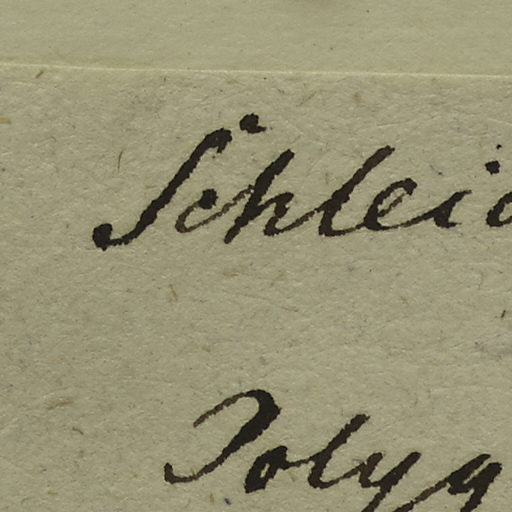 Schleic
Polyg